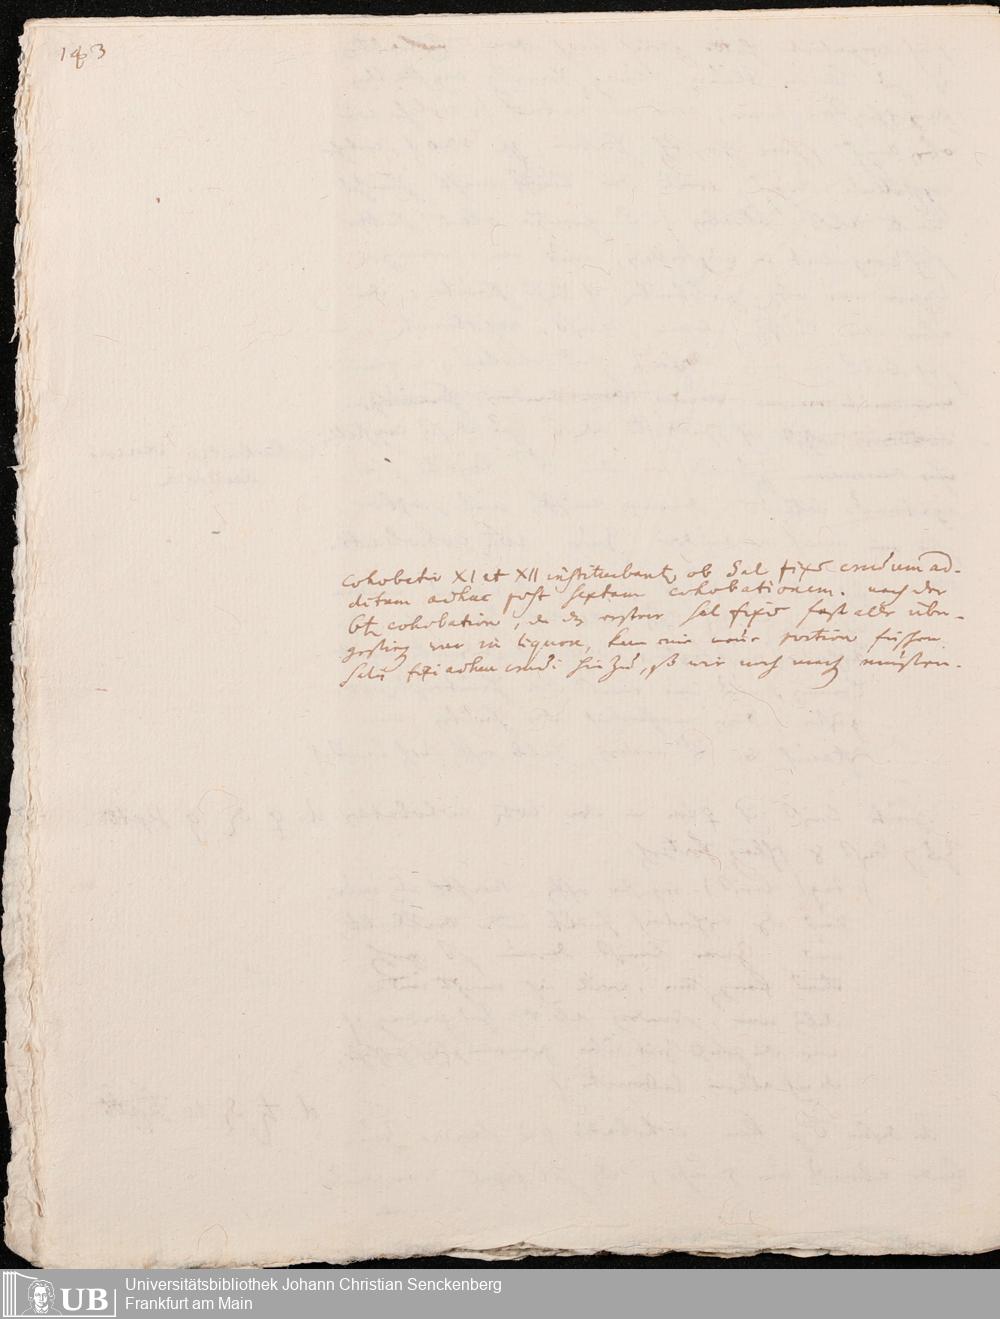 143
cohobatio XI et XII instituebant ob Sal fixũ crudum ad-
ditum adhuc post septam cohobationem. nach der
6t cohobation, da dz erstere sal fixũ fast alles über-
gestieg war in liquore, kam eine neue portion frischen
Salis fixi adhuc crudi hinzu, so wir noch nach musten.
UB
Universitätsbibliothek Johann Christian Senckenberg
Frankfurt am Main